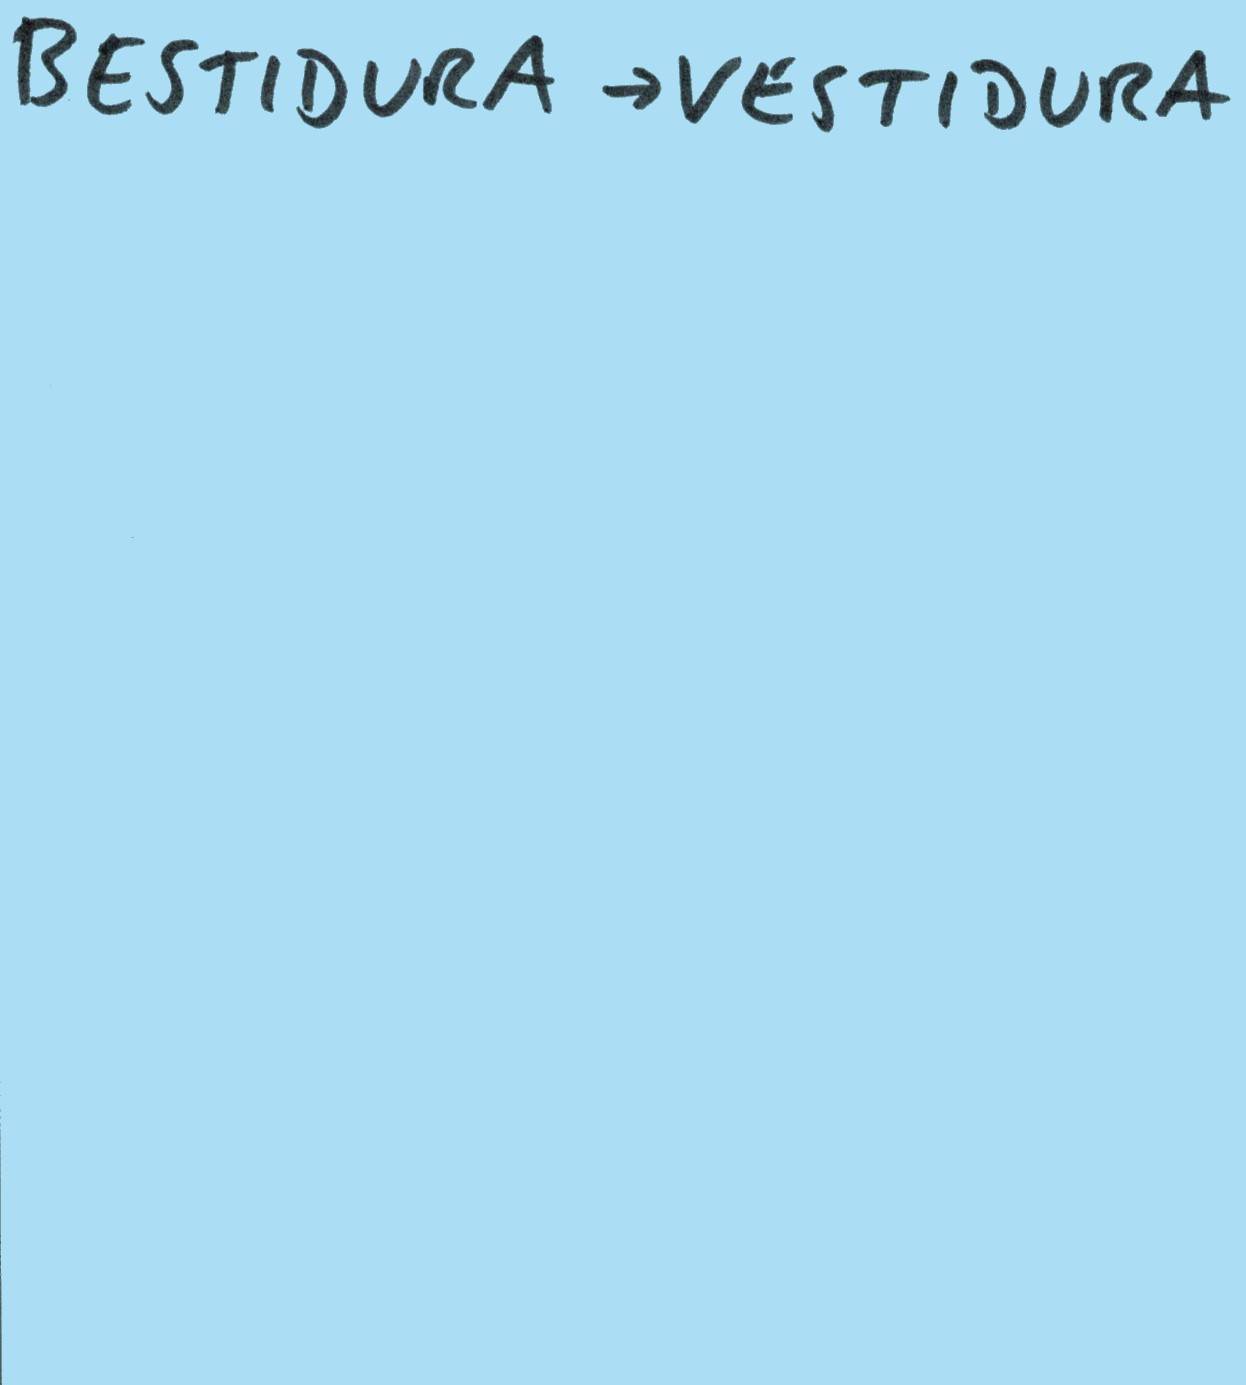 BESTIDURA → VESTIDURA